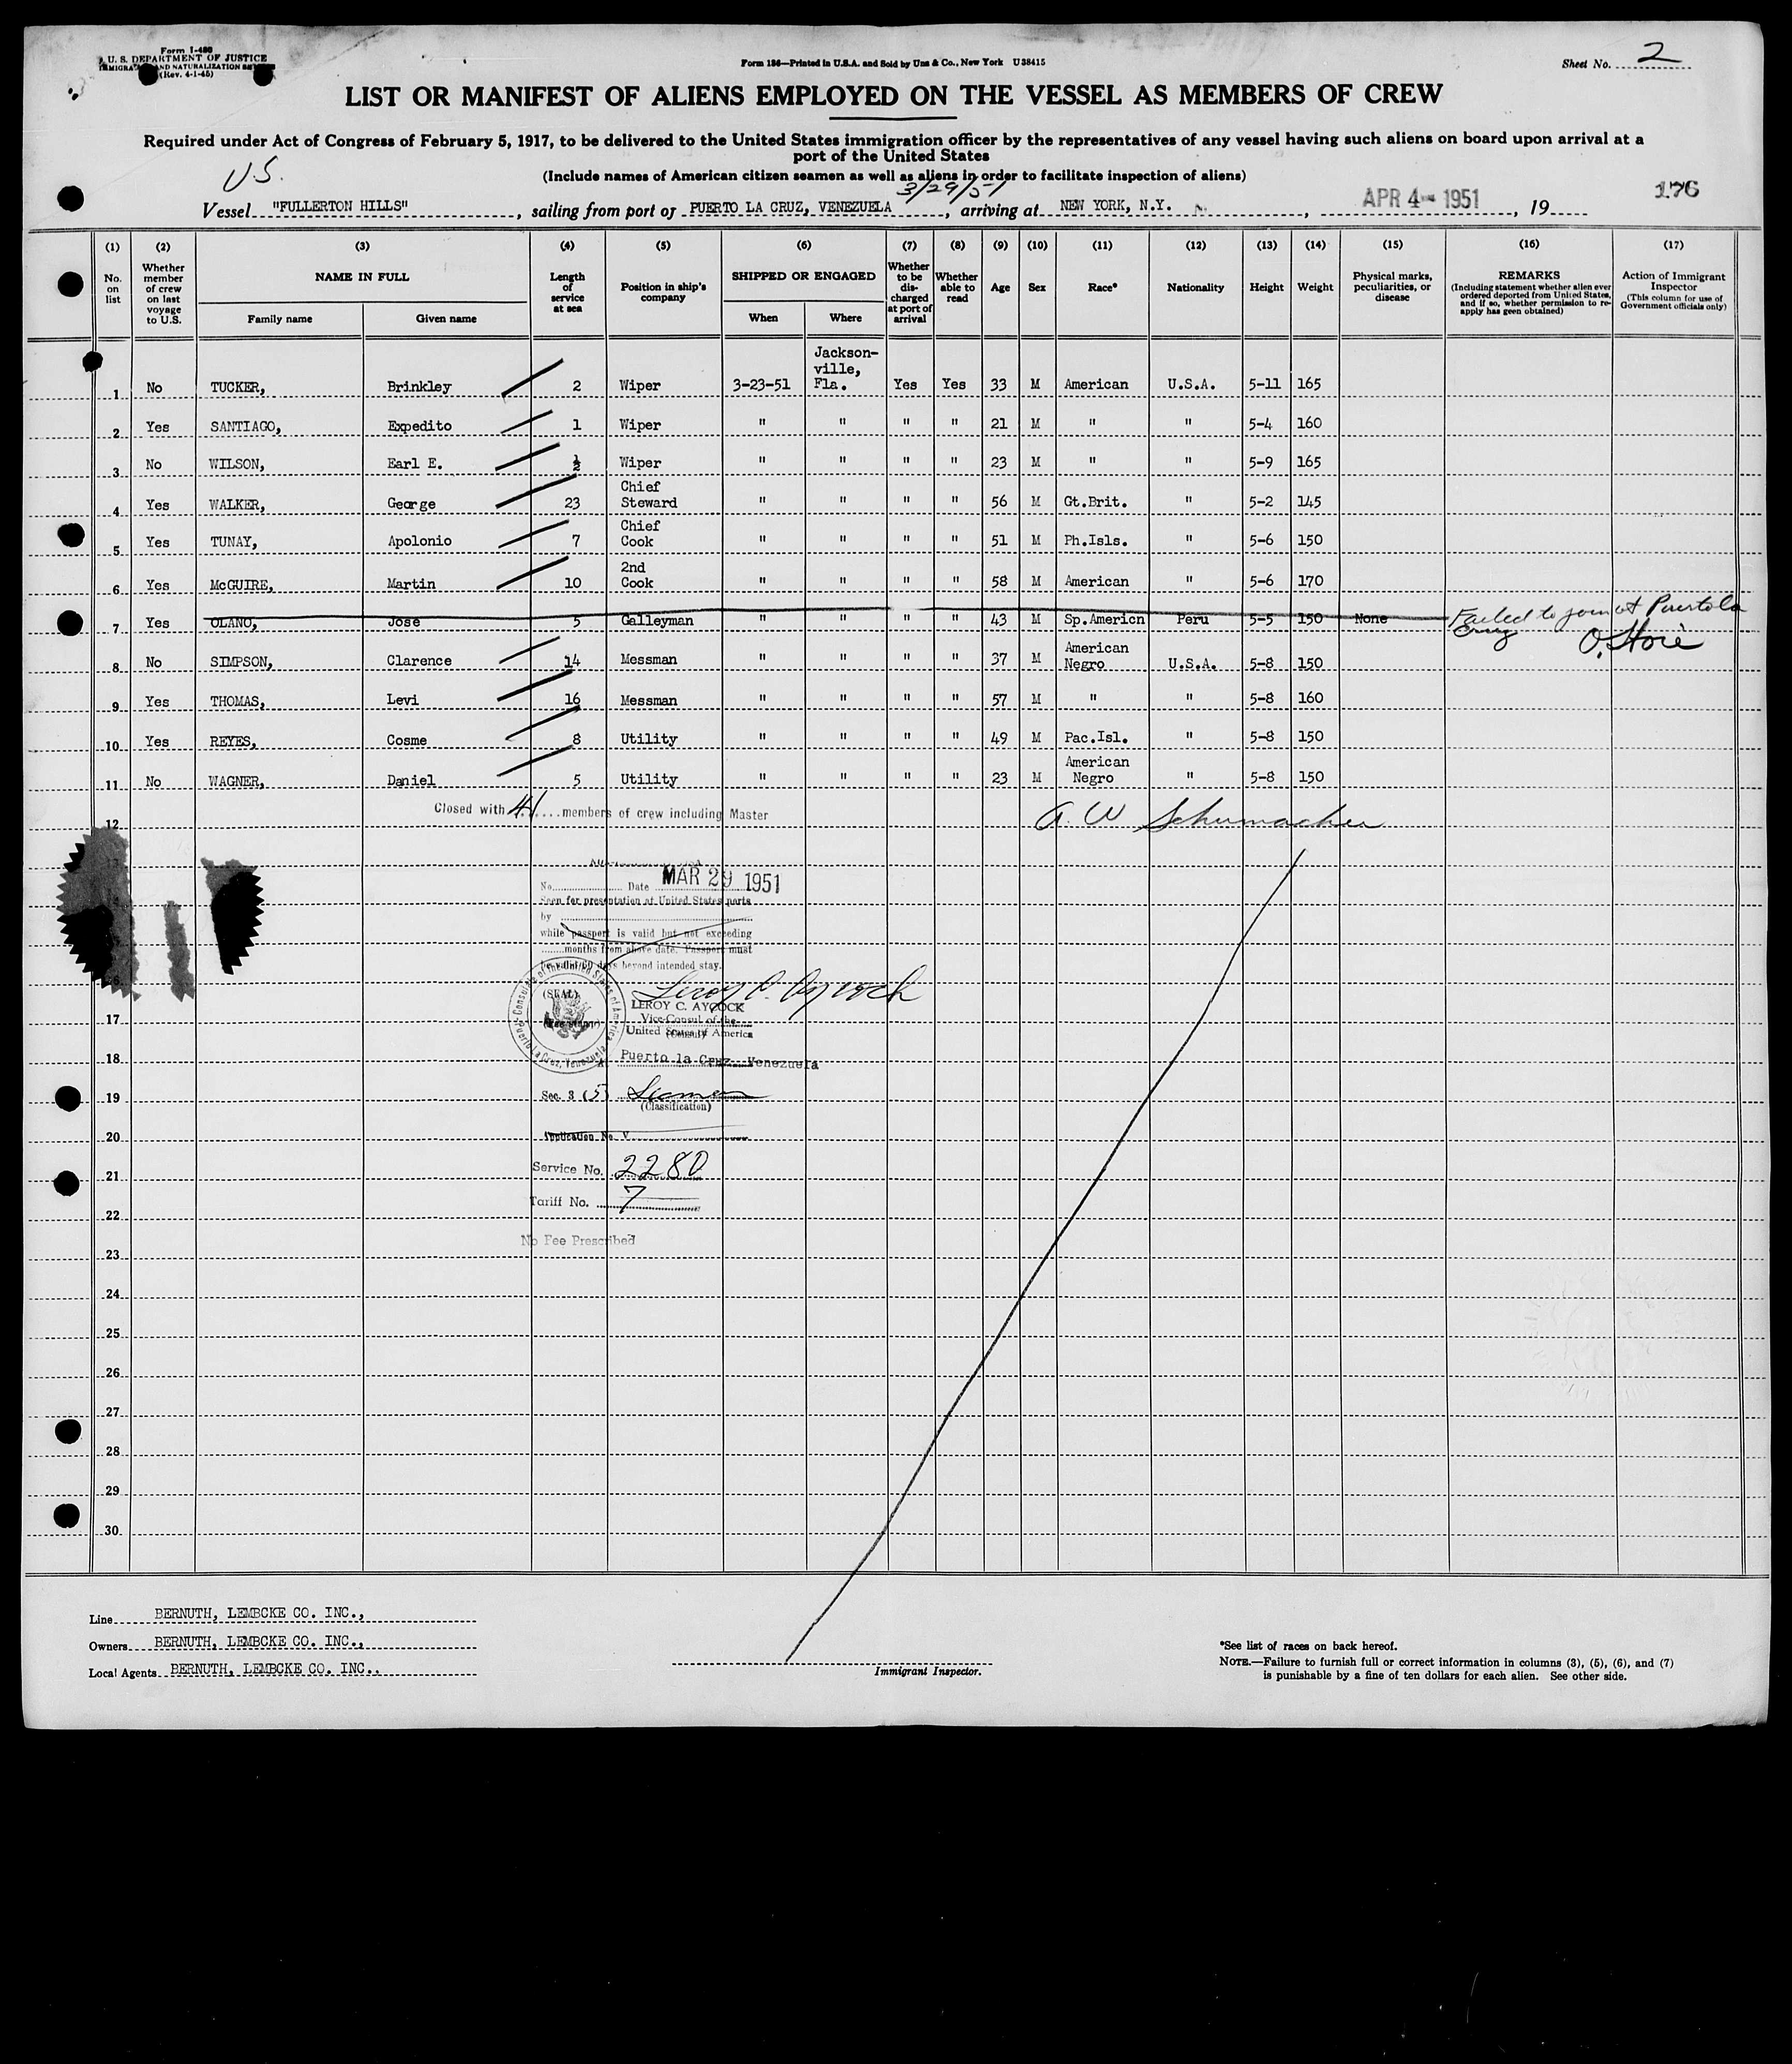 Form I-480
U. S. DEPARTMENT OF JUSTICE
IMMIGRATION AND NATURALIZATION SERVICE
(Rev. 4-1-45)
Form 186—Printed in U.S.A. and Sold by Unz & Co., New York U38415
Sheet No. 2
LIST OR MANIFEST OF ALIENS EMPLOYED ON THE VESSEL AS MEMBERS OF CREW
Required under Act of Congress of February 5, 1917, to be delivered to the United States immigration officer by the representatives of any vessel having such aliens on board upon arrival at a
port of the United States
(Include names of American citizen seamen as well as aliens in order to facilitate inspection of aliens)
U.S. 3/29/51 176
Vessel "FULLERTON HILLS", sailing from port of PUERTO LA CRUZ, VENEZUELA, arriving at NEW YORK, N.Y., APR 4 - 1951, 19
(1) (2) (3) (4) (5) (6) (7) (8) (9) (10) (11) (12) (13) (14) (15) (16) (17)
No. on list Whether member of crew on last voyage to U.S. NAME IN FULL Family name Given name Length of service at sea Position in ship's company SHIPPED OR ENGAGED When Where Whether to be discharged at port of arrival Whether able to read Age Sex Race* Nationality Height Weight Physical marks, peculiarities, or disease REMARKS (Including statement whether alien ever ordered deported from United States, and if so, whether permission to re-apply has geen obtained) Action of Immigrant Inspector (This column for use of Government officials only)
1 No TUCKER, Brinkley 2 Wiper 3-23-51 Jackson-ville, Fla. Yes Yes 33 M American U.S.A. 5-11 165
2 Yes SANTIAGO, Expedito 1 Wiper " " " " 21 M " " 5-4 160
3 No WILSON, Earl E. ½ Wiper " " " " 23 M " " 5-9 165
4 Yes WALKER, George 23 Chief Steward " " " " 56 M Gt.Brit. " 5-2 145
5 Yes TUNAY, Apolonio 7 Chief Cook " " " " 51 M Ph.Isls. " 5-6 150
6 Yes McGUIRE, Martin 10 2nd Cook " " " " 58 M American " 5-6 170
7 Yes OLANO, Jose 5 Galleyman " " " " 43 M Sp.Americn Peru 5-5 150 None Failed to join at Puerto la Cruz
8 No SIMPSON, Clarence 14 Messman " " " " 37 M American Negro U.S.A. 5-8 150
9 Yes THOMAS, Levi 16 Messman " " " " 57 M " " 5-8 160
10 Yes REYES, Cosme 8 Utility " " " " 49 M Pac.Isl. " 5-8 150
11 No WAGNER, Daniel 5 Utility " " " " 23 M American Negro " 5-8 150
Closed with 41 members of crew including Master
A. W Schumacher
12
No. Date MAR 29 1951
Seen for presentation at United States ports
by
while passport is valid but not exceeding
months from above date. Passport must
be valid 60 days beyond intended stay.
16
(SEAL) Leroy C. Aycock
LEROY C. AYCOCK
(Fee stamp) Vice-Consul of the
17
United States of America
(Consul)
Consulate of the United States of America
Puerto La Cruz, Venezuela
At Puerto la Cruz, Venezuela
18
19 Sec. 3 (5) Seaman
(Classification)
20 Application No. V
21 Service No. 2280
Tariff No. 7
22
No Fee Prescribed
23
24
25
26
27
28
29
30
Line BERNUTH, LEMBCKE CO. INC.,
Owners BERNUTH, LEMBCKE CO. INC.,
Local Agents BERNUTH, LEMBCKE CO. INC.,
Immigrant Inspector.
*See list of races on back hereof.
NOTE.—Failure to furnish full or correct information in columns (3), (5), (6), and (7)
is punishable by a fine of ten dollars for each alien. See other side.